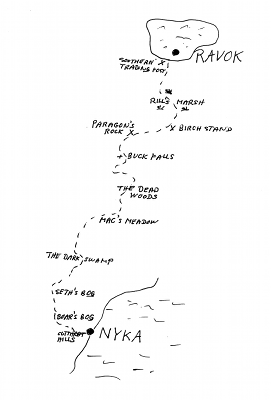 RAVOK
SOUTHERN
TRADING POST
RILL'S MARSH
PARAGON'S
ROCK
BIRCH STAND
BUCK FALLS
THE DEAD
WOODS
MAC'S MEADOW
THE DARK SWAMP
SETH'S BOG
BOAR'S BOG
CUTTHROAT
HILLS
NYKA